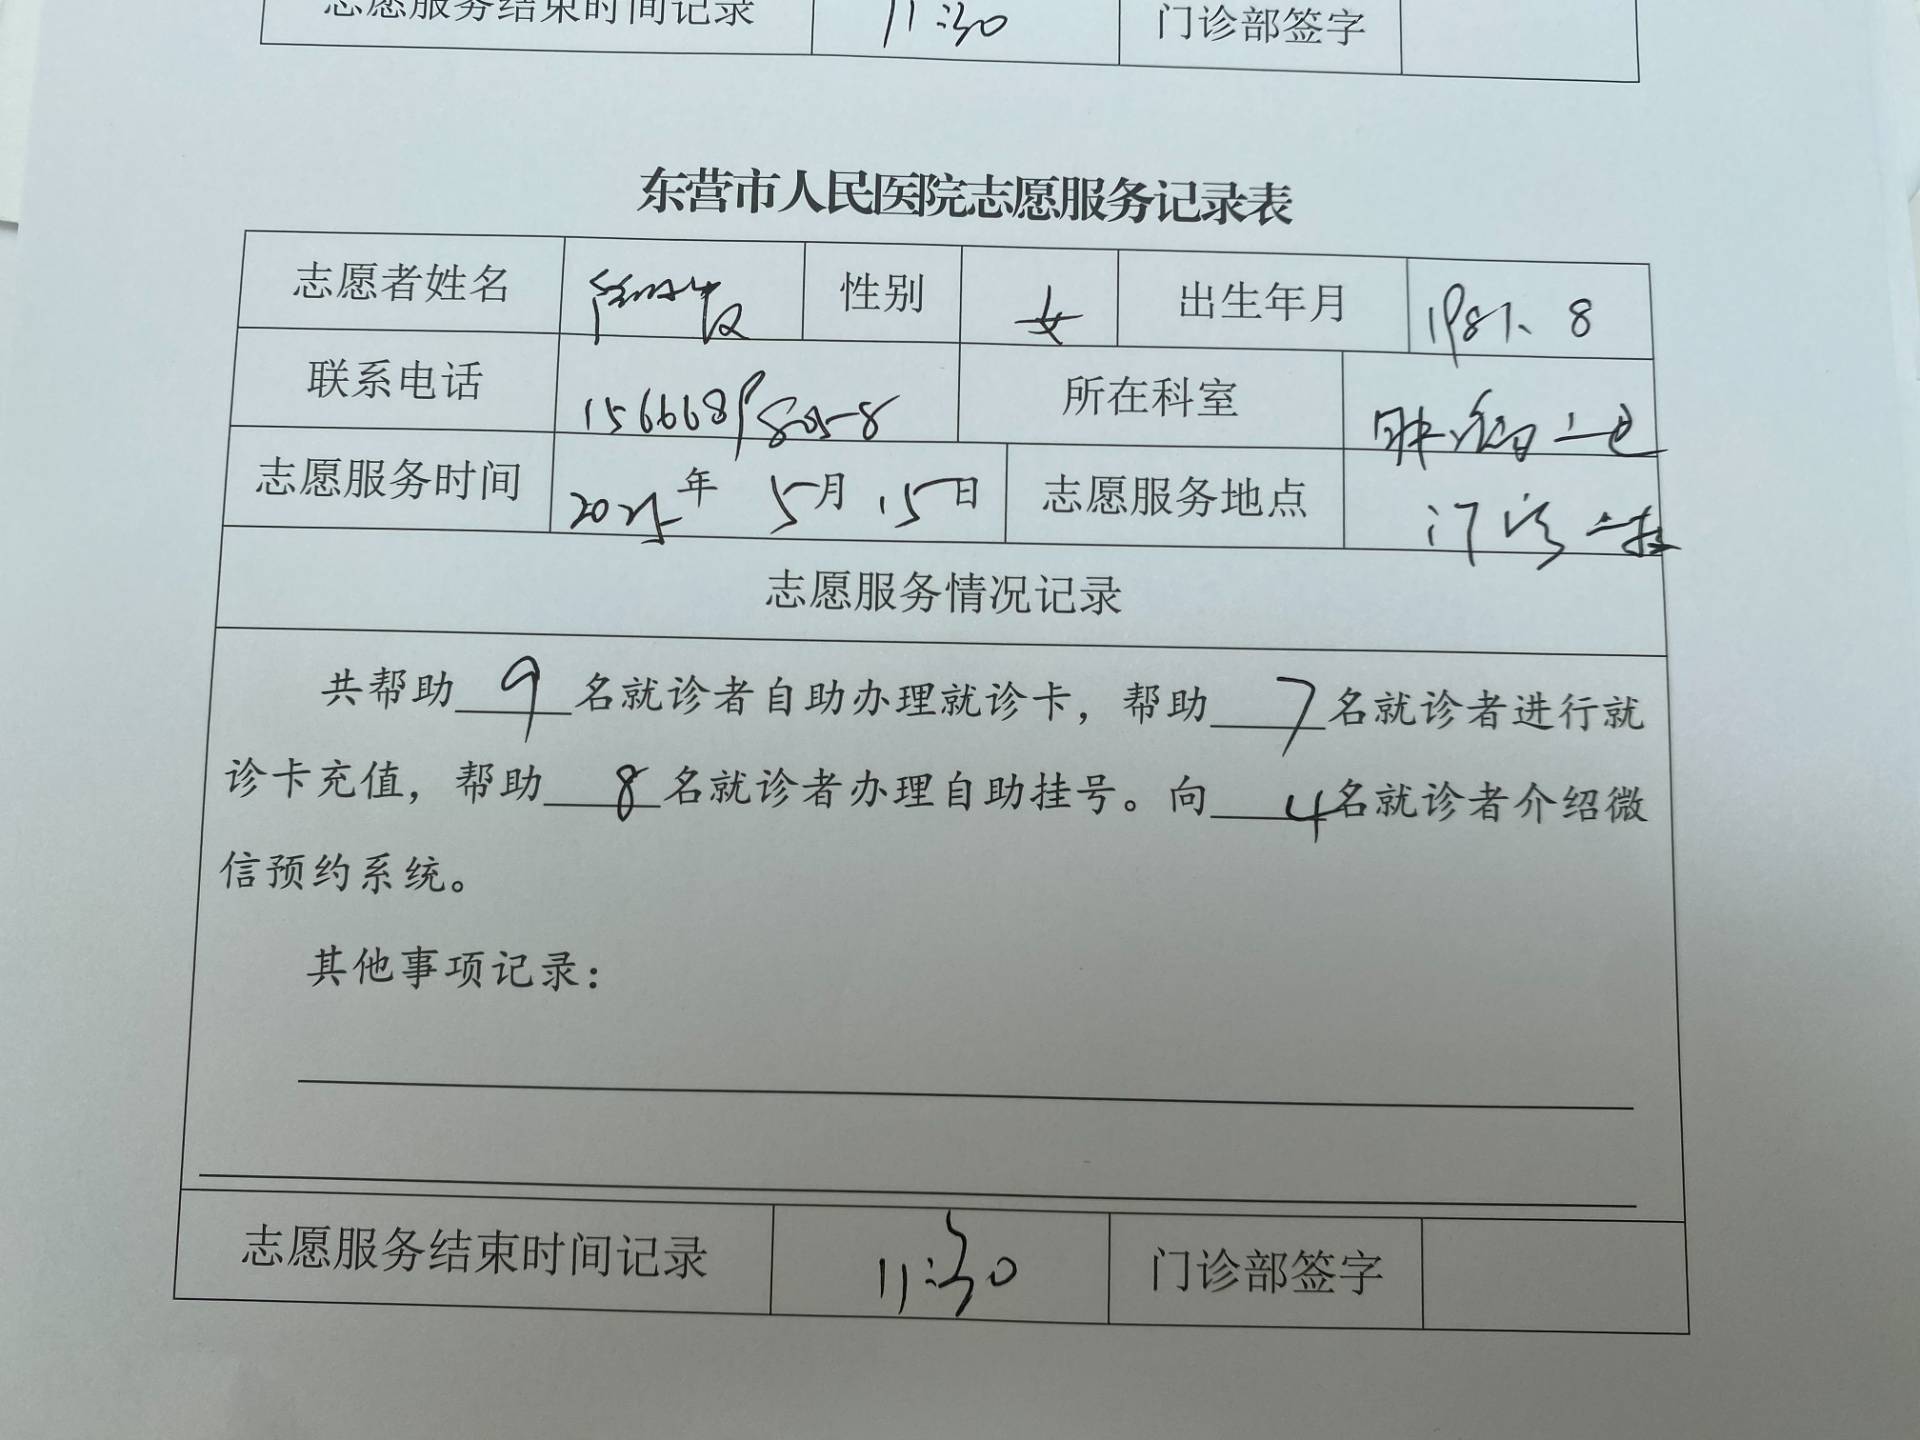 志愿服务结束时间记录 11:30 门诊部签字
东营市人民医院志愿服务记录表
志愿者姓名 性别 女 出生年月 1987.8
联系电话 所在科室 肿瘤二
志愿服务时间 2025年 5月 15日 志愿服务地点 门诊一楼
志愿服务情况记录
共帮助 9 名就诊者自助办理就诊卡，帮助 7 名就诊者进行就
诊卡充值，帮助 8 名就诊者办理自助挂号。向 4 名就诊者介绍微
信预约系统。
其他事项记录：
志愿服务结束时间记录 11:30 门诊部签字